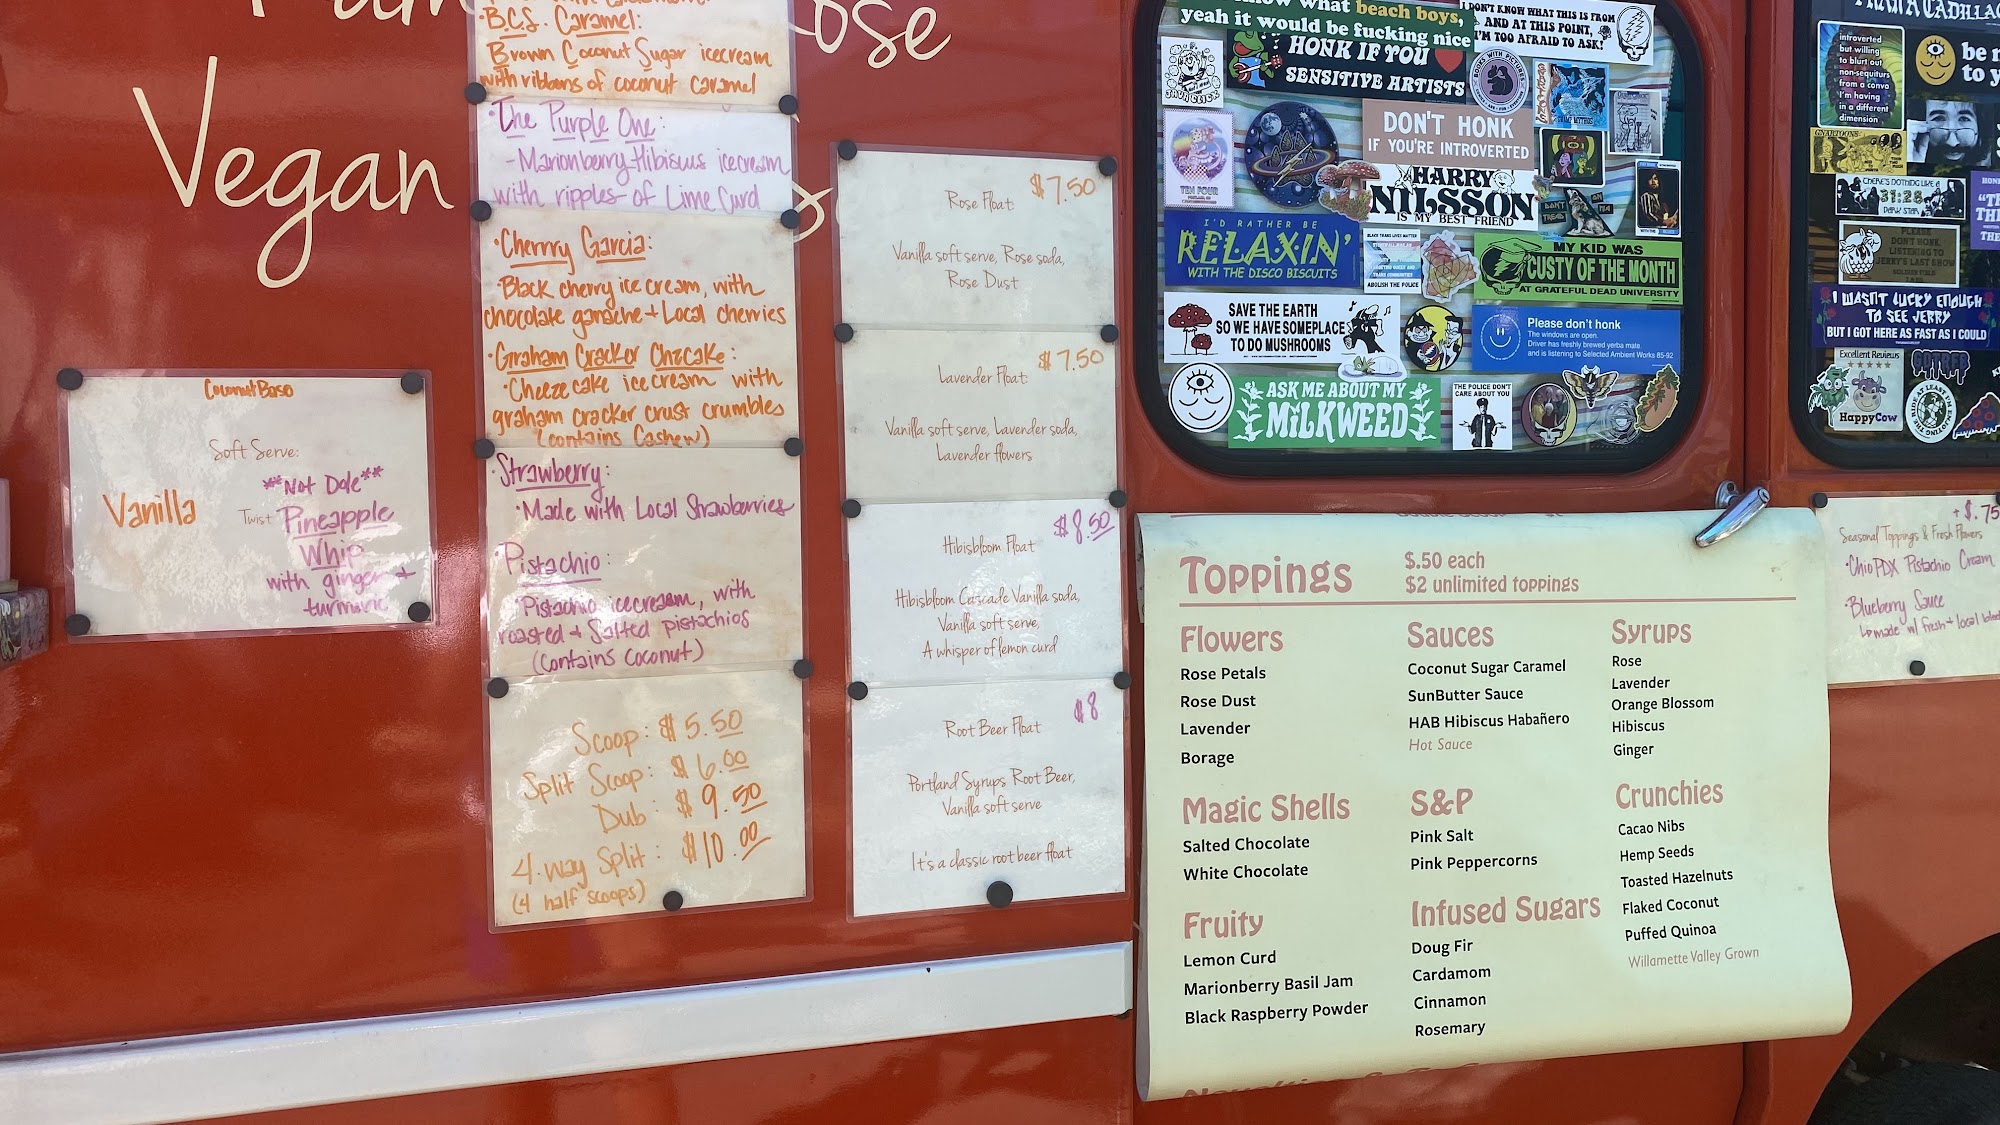 Vegan
ose
Coconut Base
Soft Serve:
Vanilla
Twist
**Not Dole**
Pineapple
Whip
with ginger +
turmeric
·B.C.S. Caramel:
Brown Coconut Sugar icecream
with ribbons of coconut caramel
·The Purple One:
-Marionberry-Hibiscus icecream
with ripples of Lime Curd
·Cherrry Garcia:
·Black cherry ice cream, with
chocolate ganache + Local cherries
·Graham Cracker Chzcake:
·Cheezecake icecream with
graham cracker crust crumbles
(contains Cashew)
·Strawberry:
·Made with Local Strawberries
·Pistachio:
·Pistachio icecream, with
roasted + Salted pistachios
(contains coconut)
Scoop: $5.50
Split Scoop: $6.00
Dub: $9.50
4 way Split: $10.00
(4 half scoops)
Rose Float $7.50
Vanilla soft serve, Rose soda,
Rose Dust
Lavender Float $7.50
Vanilla soft serve, Lavender soda,
Lavender flowers
Hibisbloom Float $8.50
Hibisbloom Cascade Vanilla soda,
Vanilla soft serve,
A whisper of lemon curd
Root Beer Float $8
Portland Syrups Root Beer,
Vanilla soft serve
It's a classic root beer float
know what beach boys,
yeah it would be fucking nice
I DON'T KNOW WHAT THIS IS FROM
AND AT THIS POINT,
I'M TOO AFRAID TO ASK!
HONK IF YOU
SENSITIVE ARTISTS
BOOKS WITH PICTURES
DON'T HONK
IF YOU'RE INTROVERTED
TEN FOUR
HARRY
NILSSON
IS MY BEST FRIEND
DON'T TREAD ON ME
I'D RATHER BE
RELAXIN'
WITH THE DISCO BISCUITS
BLACK TRANS LIVES MATTER
ABOLISH THE POLICE
MY KID WAS
CUSTY OF THE MONTH
AT GRATEFUL DEAD UNIVERSITY
SAVE THE EARTH
SO WE HAVE SOMEPLACE
TO DO MUSHROOMS
Please don't honk
The windows are open.
Driver has freshly brewed yerba mate.
and is listening to Selected Ambient Works 85-92
ASK ME ABOUT MY
MILKWEED
THE POLICE DON'T
CARE ABOUT YOU
THAN A CADILLAC
introverted
but willing
to blurt out
non-sequiturs
from a convo
I'm having
in a different
dimension
be n
to y
THERE'S NOTHING LIKE A
31:28
DARK STAR
PLEASE
DON'T HONK,
LISTENING TO
JERRY'S LAST SHOW
I WASN'T LUCKY ENOUGH
TO SEE JERRY
BUT I GOT HERE AS FAST AS I COULD
Excellent Reviews
HappyCow
GOTREB
RIDE AT LEAST I'M ENJOYING THE
Toppings
$.50 each
$2 unlimited toppings
Flowers
Rose Petals
Rose Dust
Lavender
Borage
Magic Shells
Salted Chocolate
White Chocolate
Fruity
Lemon Curd
Marionberry Basil Jam
Black Raspberry Powder
Sauces
Coconut Sugar Caramel
SunButter Sauce
HAB Hibiscus Habañero
Hot Sauce
S&P
Pink Salt
Pink Peppercorns
Infused Sugars
Doug Fir
Cardamom
Cinnamon
Rosemary
Syrups
Rose
Lavender
Orange Blossom
Hibiscus
Ginger
Crunchies
Cacao Nibs
Hemp Seeds
Toasted Hazelnuts
Flaked Coconut
Puffed Quinoa
Willamette Valley Grown
+$.75
Seasonal Toppings & Fresh Flowers
·ChioPDX Pistachio Cream
·Blueberry Sauce
made w/ fresh + local